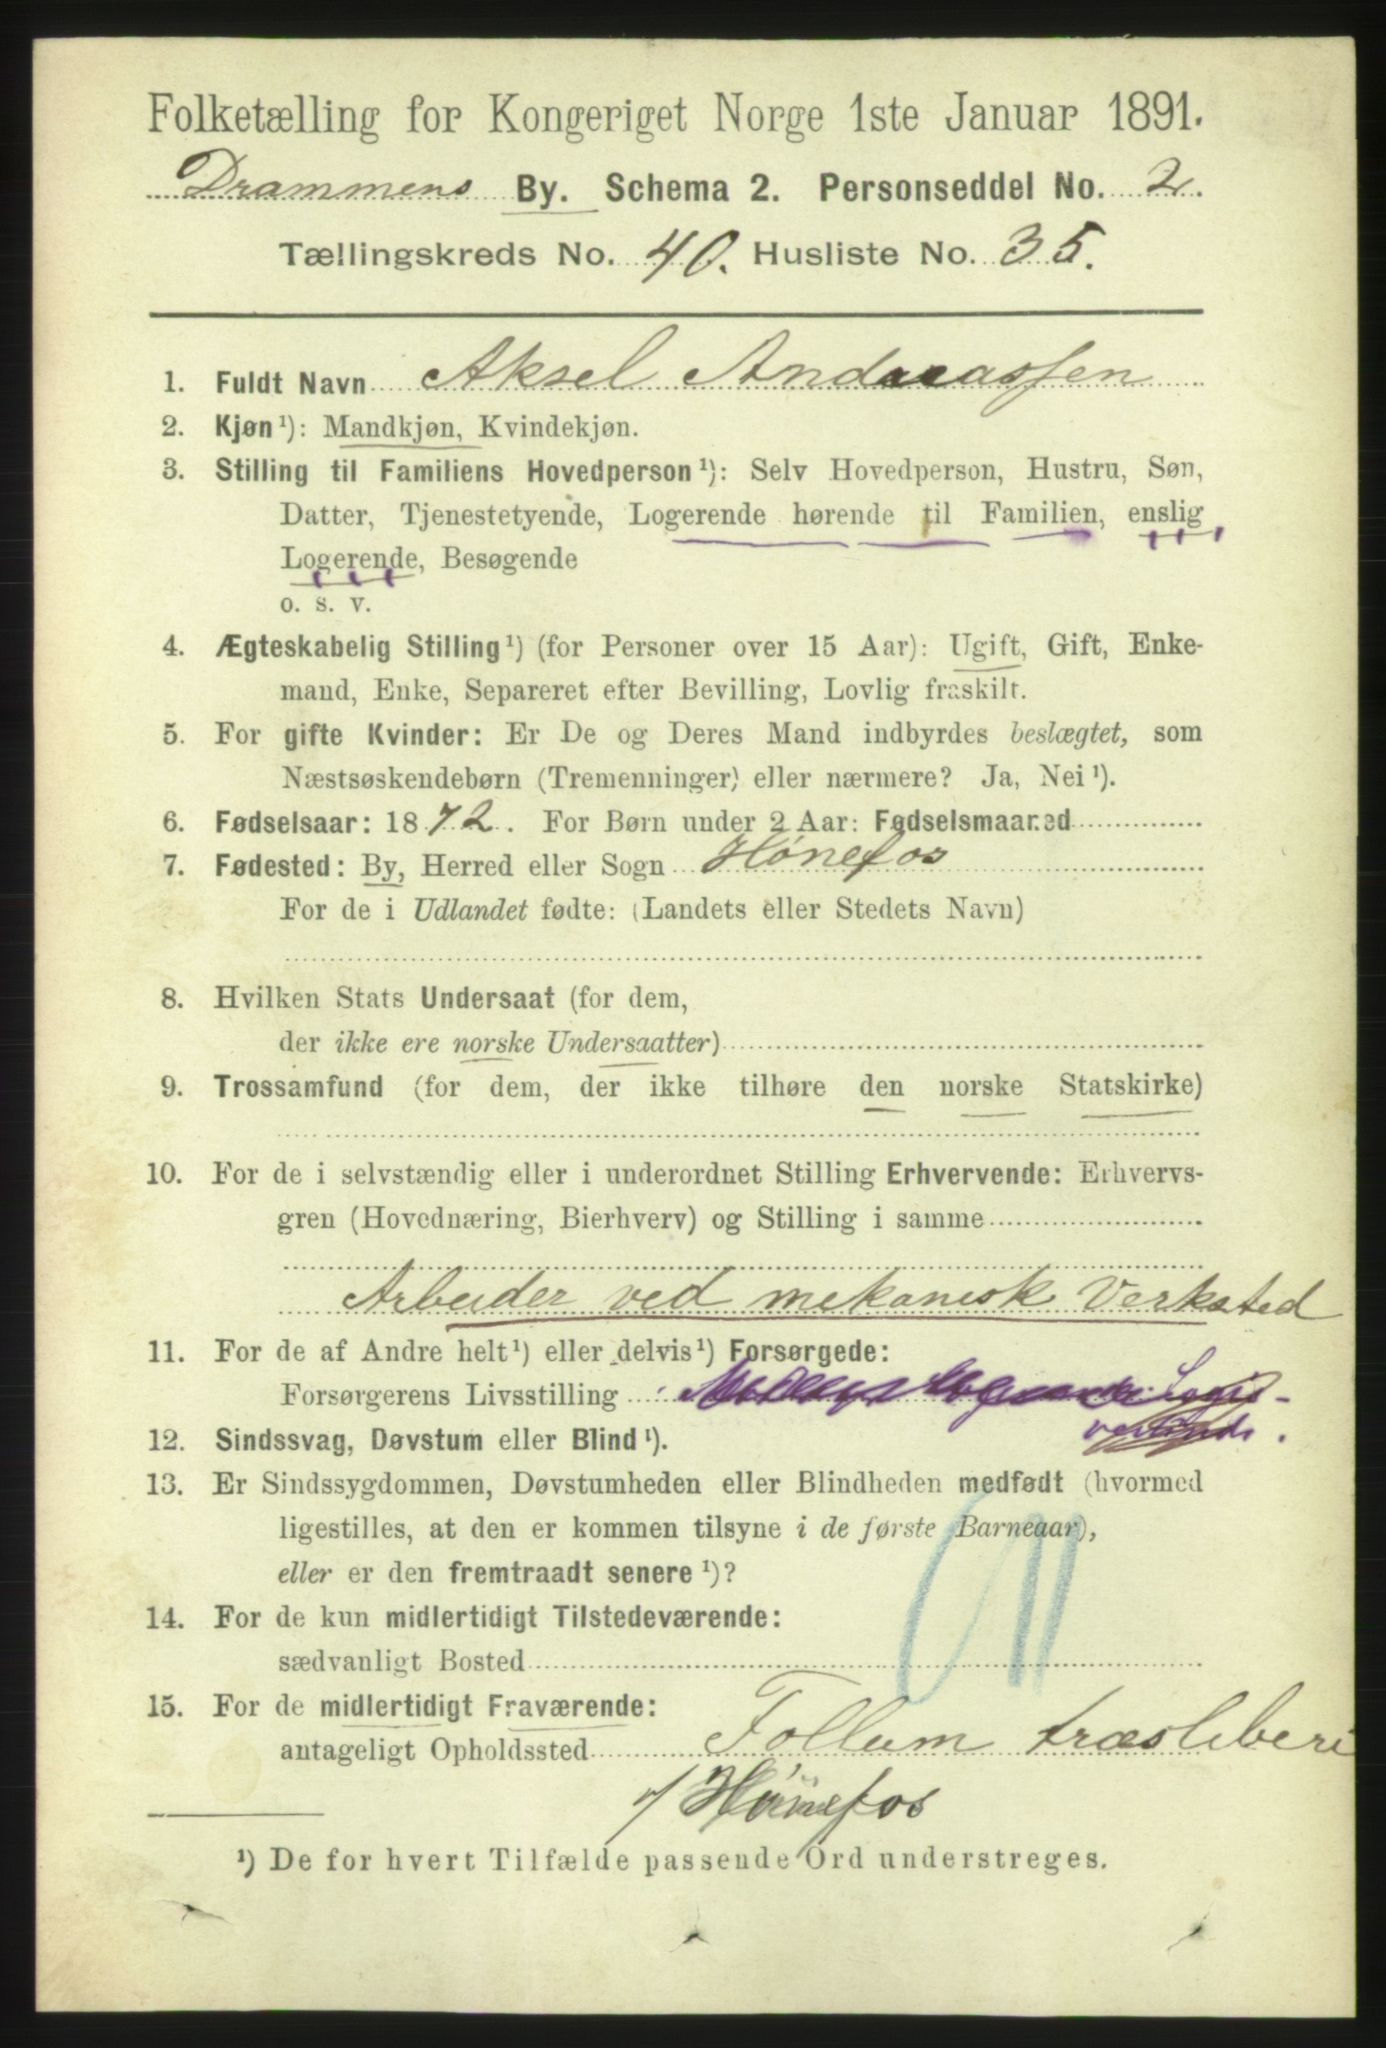 Folketælling for Kongeriget Norge 1ste Januar 1891.
Drammens By. Schema 2. Personseddel No. 2.
Tællingskreds No. 40. Husliste No. 35.
1. Fuldt Navn Aksel Andreassen
2. Kjøn ¹): Mandkjøn, Kvindekjøn.
3. Stilling til Familiens Hovedperson ¹): Selv Hovedperson, Hustru, Søn,
Datter, Tjenestetyende, Logerende hørende til Familien, enslig
Logerende, Besøgende
o. s. v.
4. Ægteskabelig Stilling ¹) (for Personer over 15 Aar): Ugift, Gift, Enke-
mand, Enke, Separeret efter Bevilling, Lovlig fraskilt.
5. For gifte Kvinder: Er De og Deres Mand indbyrdes beslægtet, som
Næstsøskendebørn (Tremenninger) eller nærmere? Ja, Nei ¹).
6. Fødselsaar: 1872. For Børn under 2 Aar: Fødselsmaaned
7. Fødested: By, Herred eller Sogn Hønefos
For de i Udlandet fødte: (Landets eller Stedets Navn)
8. Hvilken Stats Undersaat (for dem,
der ikke ere norske Undersaatter)
9. Trossamfund (for dem, der ikke tilhøre den norske Statskirke)
10. For de i selvstændig eller i underordnet Stilling Erhvervende: Erhvervs-
gren (Hovednæring, Bierhverv) og Stilling i samme
Arbeider ved mekanisk Verksted
11. For de af Andre helt ¹) eller delvis ¹) Forsørgede:
Forsørgerens Livsstilling Logis-
12. Sindssvag, Døvstum eller Blind ¹).
13. Er Sindssygdommen, Døvstumheden eller Blindheden medfødt (hvormed
ligestilles, at den er kommen tilsyne i de første Barneaar),
eller er den fremtraadt senere ¹)?
14. For de kun midlertidigt Tilstedeværende:
sædvanligt Bosted
15. For de midlertidigt Fraværende:
antageligt Opholdssted Follum træsleberi
/ Hønefos
¹) De for hvert Tilfælde passende Ord understreges.